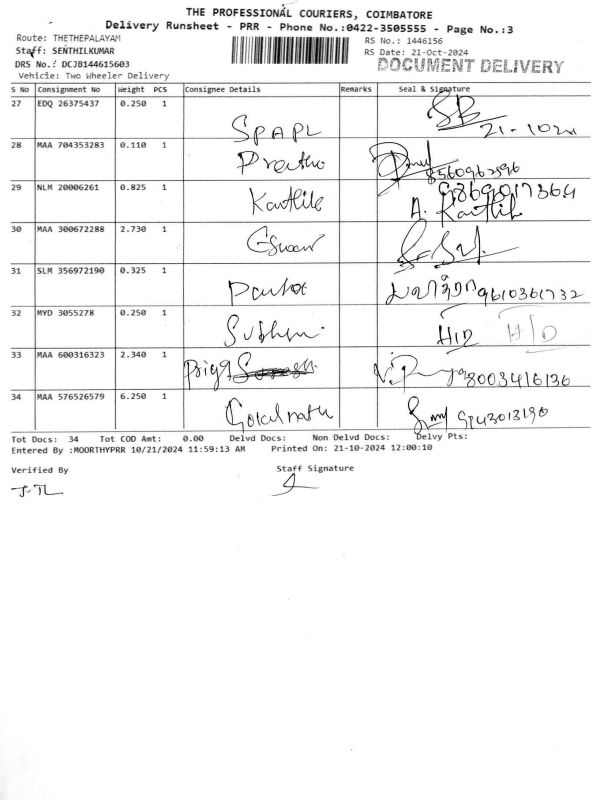 THE PROFESSIONAL COURIERS, COIMBATORE
Delivery Runsheet - PRR - Phone No.:0422-3505555 - Page No.:3
Route: THETHEPALAYAM
RS No.: 1446156
Staff: SENTHILKUMAR
RS Date: 21-Oct-2024
DRS No.: DCJB144615603
DOCUMENT DELIVERY
Vehicle: Two Wheeler Delivery
S No Consignment No Weight PCS Consignee Details Remarks Seal & Signature
27 EDQ 26375437 0.250 1
SPAPL
28 MAA 704353283 0.110 1
29 NLM 20006261 0.825 1
A. Karthik
30 MAA 300672288 2.730 1
Eswar
31 SLM 356972190 0.325 1
9610361732
32 MYD 3055278 0.250 1
H/D H/D
33 MAA 600316323 2.340 1
Priya
8003416136
34 MAA 576526579 6.250 1
Gokulnath
Tot Docs: 34 Tot COD Amt: 0.00 Delvd Docs: Non Delvd Docs: Delvy Pts:
Entered By :MOORTHYPRR 10/21/2024 11:59:13 AM Printed On: 21-10-2024 12:00:10
Verified By Staff Signature